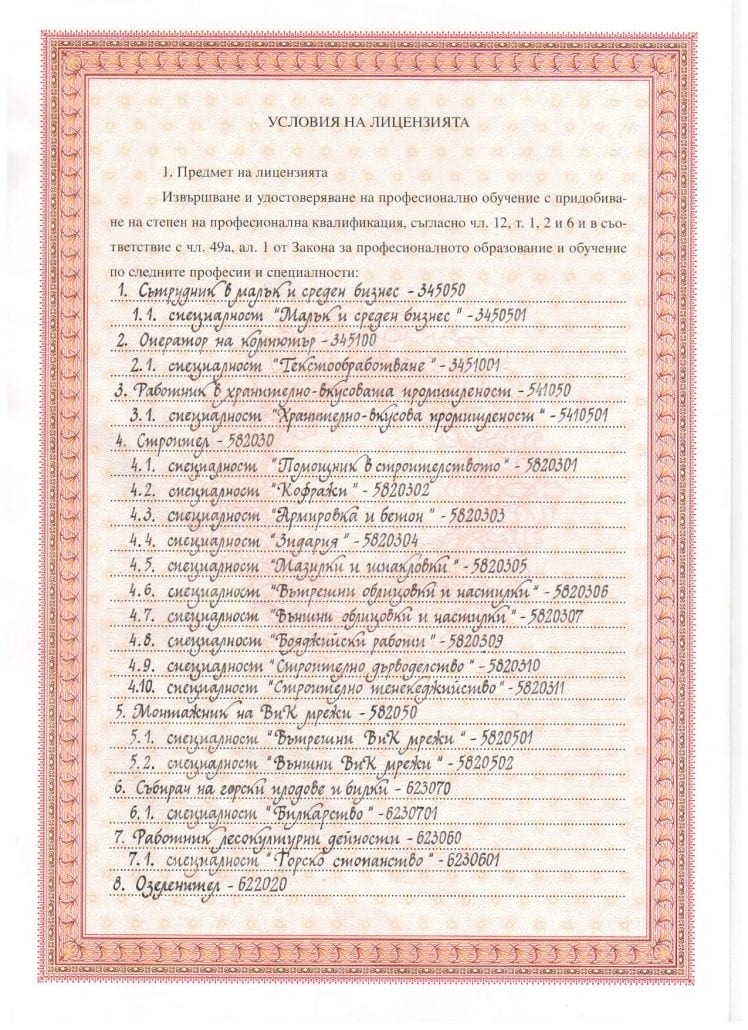 УСЛОВИЯ НА ЛИЦЕНЗИЯТА
1. Предмет на лицензията
Извършване и удостоверяване на професионално обучение с придобива-
не на степен на професионална квалификация, съгласно чл. 12, т. 1, 2 и 6 и в съо-
тветствие с чл. 49а, ал. 1 от Закона за професионалното образование и обучение
по следните професии и специалности:
1. Сътрудник в малък и среден бизнес - 345050
1.1. специалност "Малък и среден бизнес" - 3450501
2. Оператор на компютър - 345100
2.1. специалност "Текстообработване" - 3451001
3. Работник в хранително-вкусовата промишленост - 541050
3.1. специалност "Хранително-вкусова промишленост" - 5410501
4. Строител - 582030
4.1. специалност "Помощник в строителството" - 5820301
4.2. специалност "Кофражи" - 5820302
4.3. специалност "Армировка и бетон" - 5820303
4.4. специалност "Зидария" - 5820304
4.5. специалност "Мазилки и шпакловки" - 5820305
4.6. специалност "Вътрешни облицовки и настилки" - 5820306
4.7. специалност "Външни облицовки и настилки" - 5820307
4.8. специалност "Бояджийски работи" - 5820309
4.9. специалност "Строително дърводелство" - 5820310
4.10. специалност "Строително тенекеджийство" - 5820311
5. Монтажник на ВиК мрежи - 582050
5.1. специалност "Вътрешни ВиК мрежи" - 5820501
5.2. специалност "Външни ВиК мрежи" - 5820502
6. Събирач на горски плодове и билки - 623070
6.1. специалност "Билкарство" - 6230701
7. Работник лесокултурни дейности - 623060
7.1. специалност "Горско стопанство" - 6230601
8. Озеленител - 622020